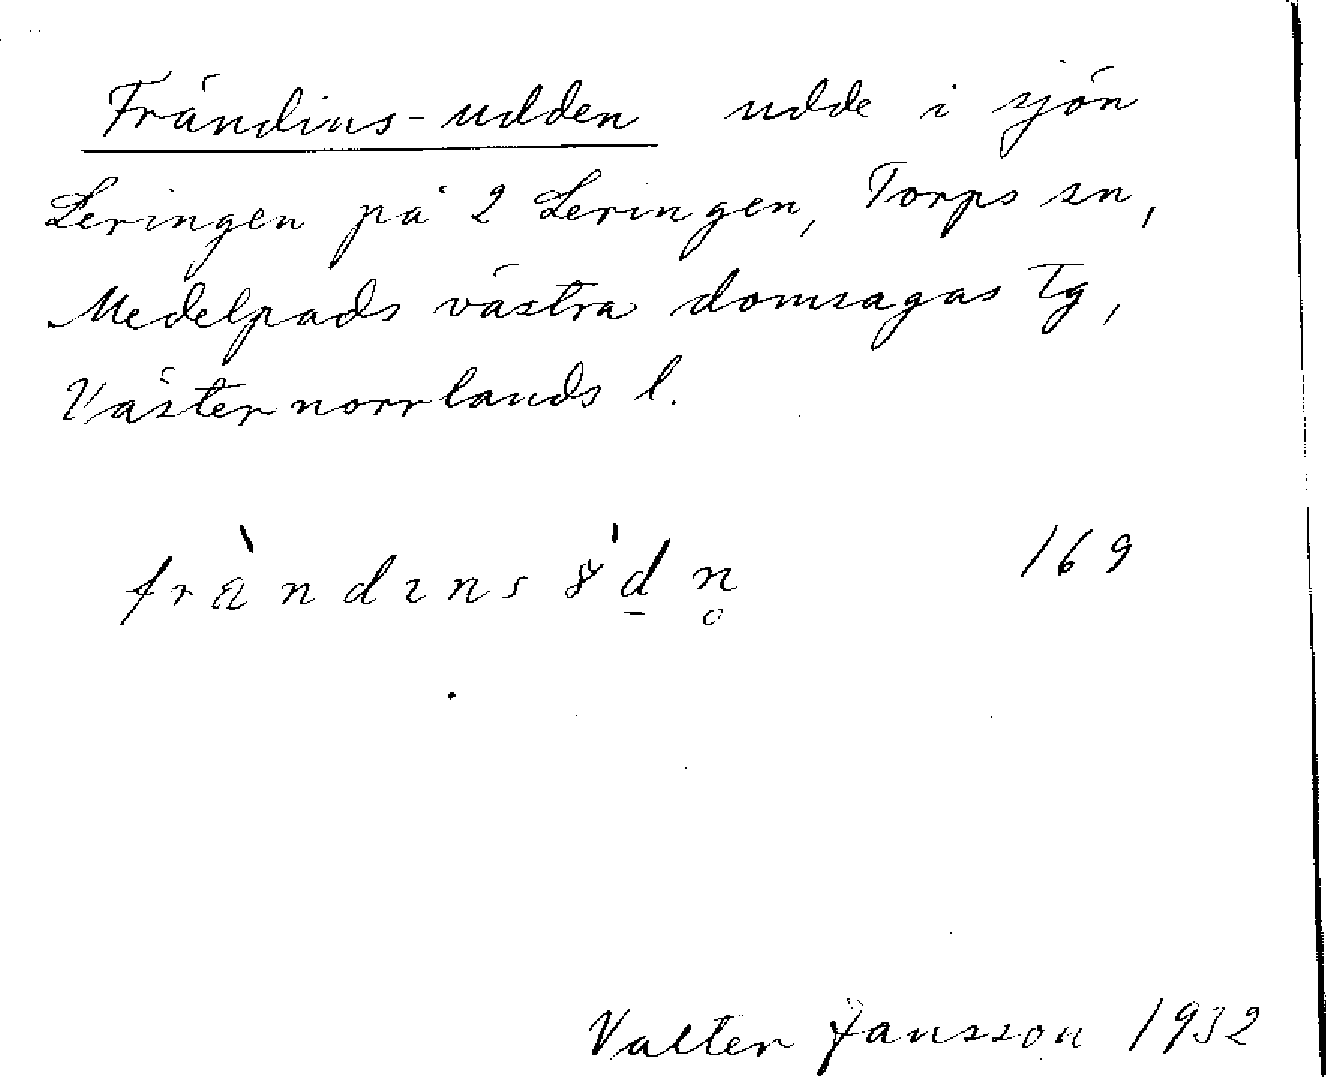 Frändius-udden udde i sjön
Leringen på 2 Leringen, Torps sn,
Medelpads västra domsagas tg,
Västernorrlands l.
169
Valter Jansson 1932